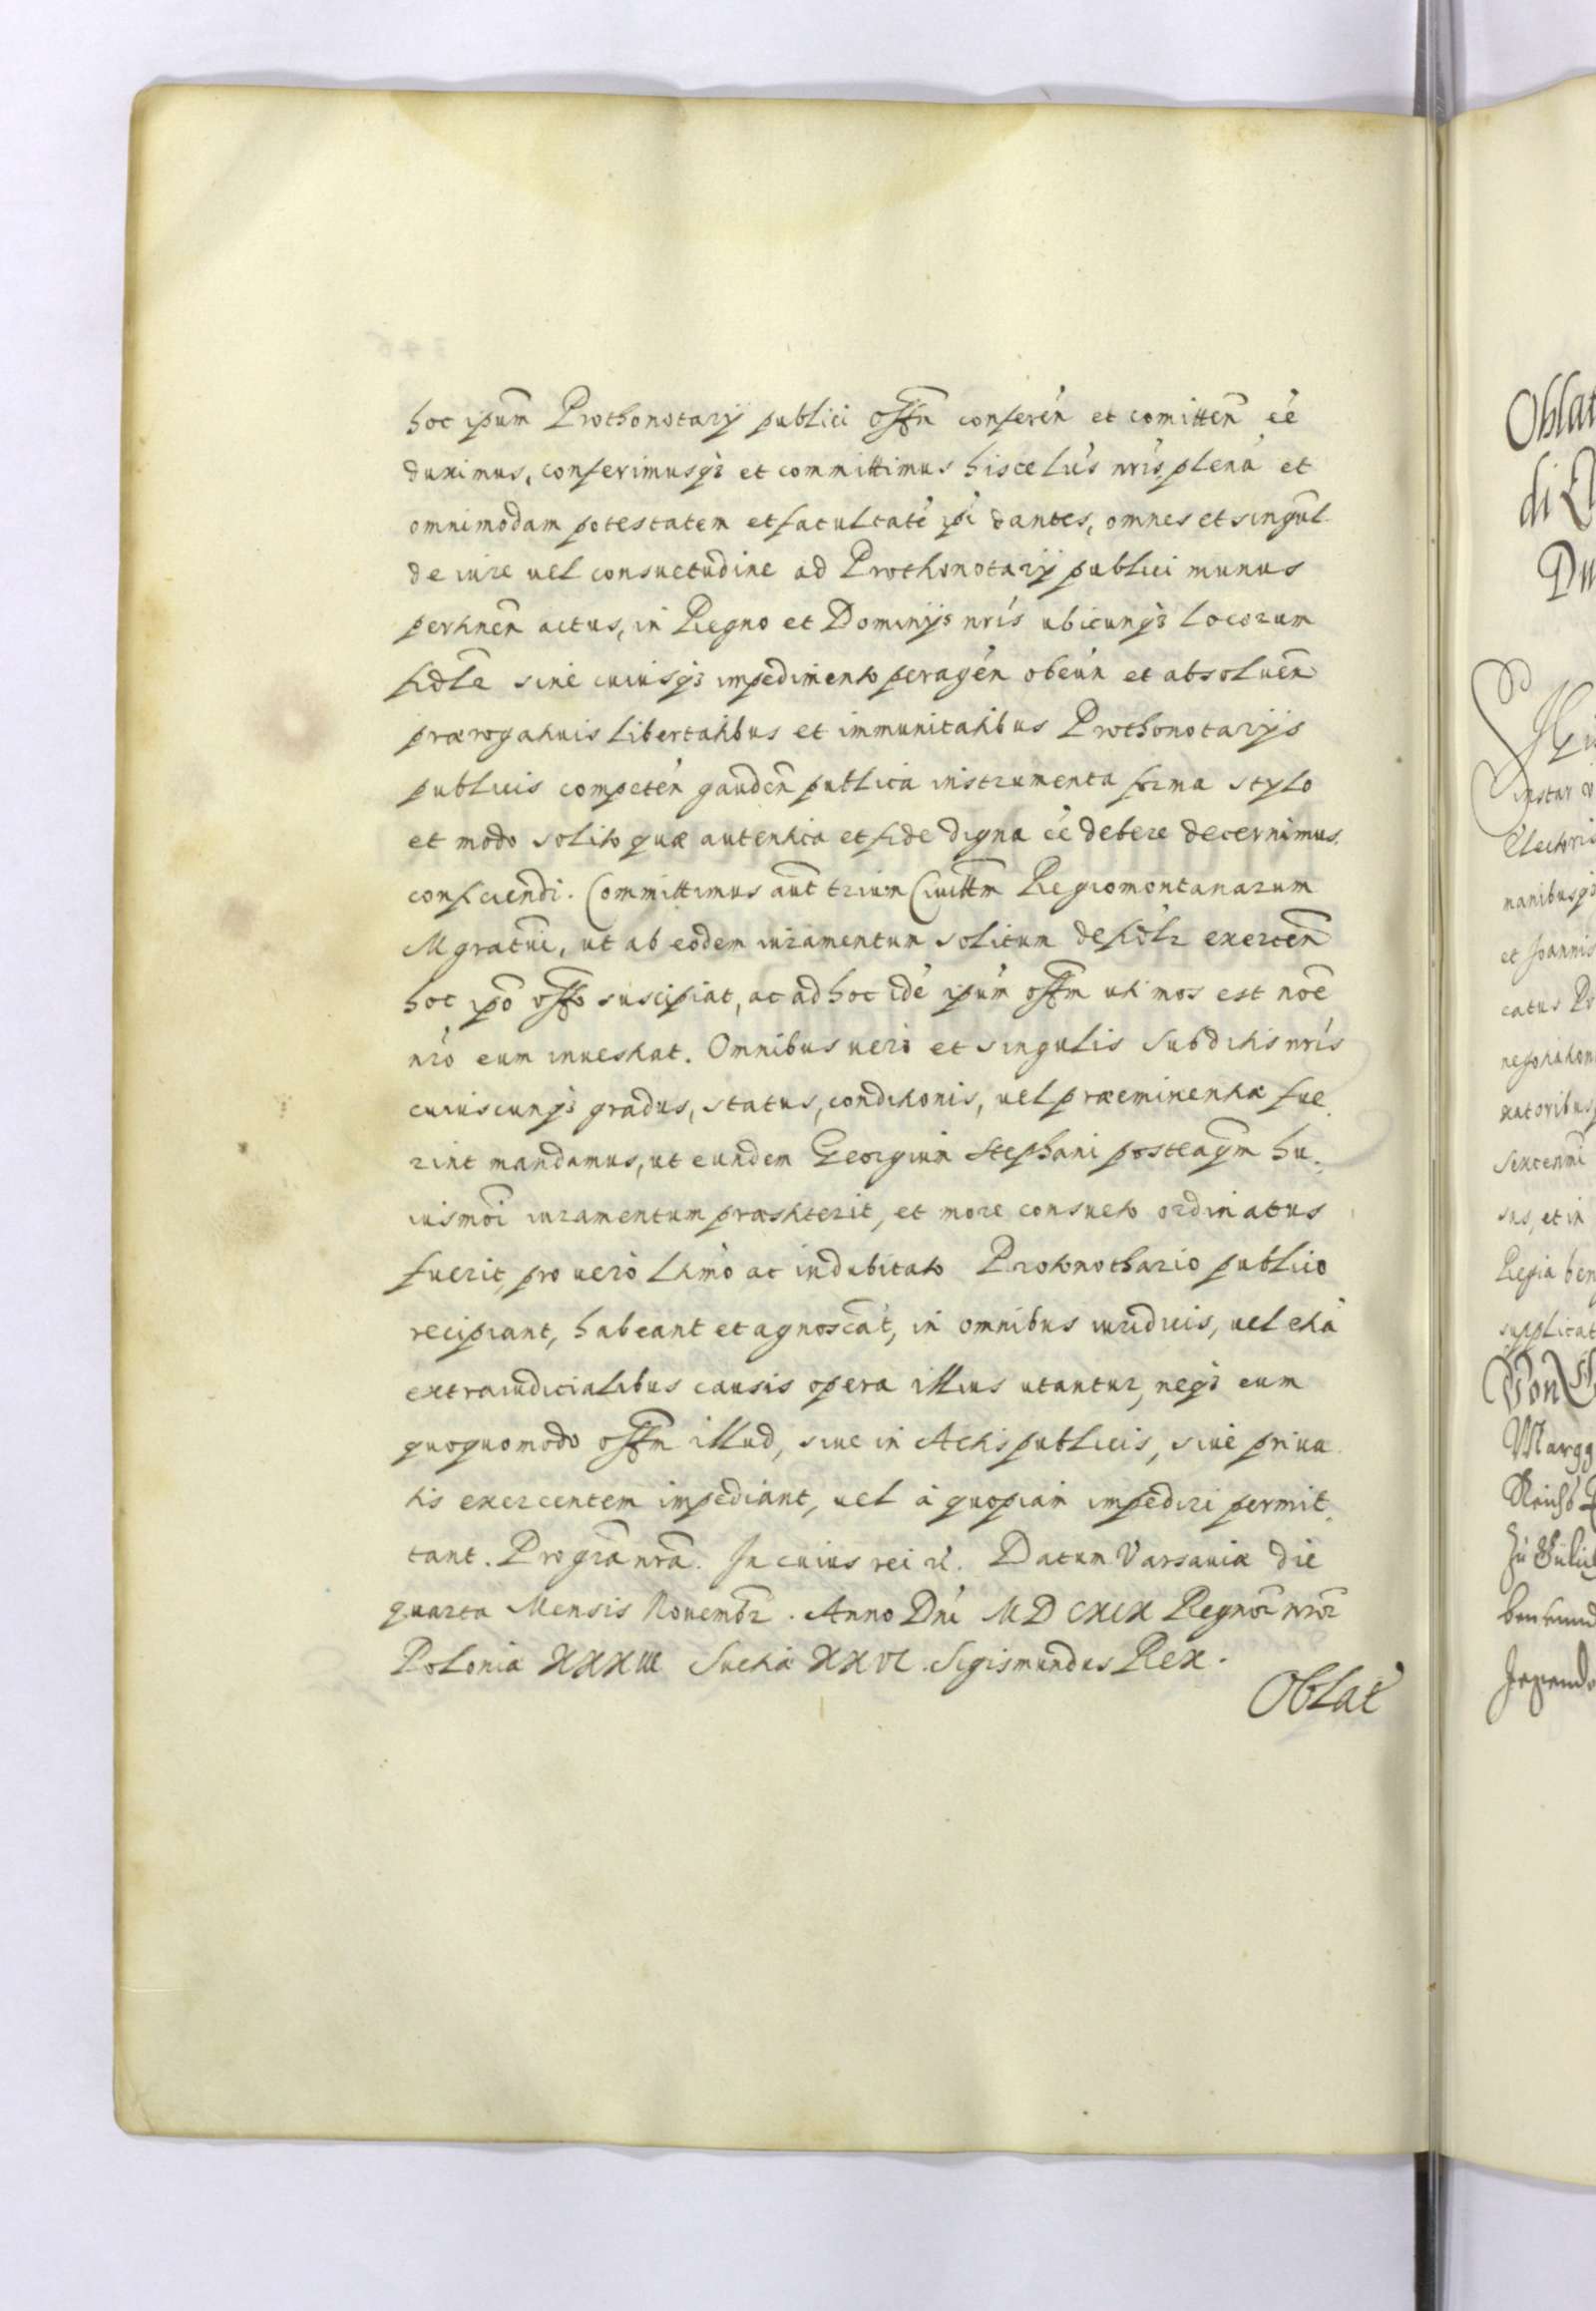 hoc ipũm Prothonotarÿ publici offm̃ conferén et comitten̄ eé
duximus, conferimusqȝ et committimus hisce lrís nrís plená et
omnimodam potestatem et facultaté ipí dantes, omnes et singul.
de iure uel consuetudine ad Prothonotarÿ publici munus
pertinen̄ actus, in Regno et Dominÿs nrís ubicunqȝ locorum
fidl̃e sine cuiusqȝ impedimento peragén obeún et absoluen̄
prærogatiuis libertatibus et immunitatibus Prothonotarÿs
publicis competén gauden̄ publica instrumenta forma stylo
et modo solito quæ autentica et fide digna eé debere decernimus.
conficiendi. Committimus aut̄ trium Ciuittm̄ Regiomontanarum
Mgratuī, ut ab eodem iuramentum solitum de fidlr̄ exercen̄
hoc ipō offō suscipiat, ac ad hoc idé ipúm offm̄ uti mos est noē
nrō eum inuestiat. Omnibus uerò et singulis Subditis nrís
cuiuscunqȝ gradus, status, conditionis, uel præeminentiæ fue.
rint mandamus, ut eundem Georgium Stephani posteaqm̄ hu.
iusmōi iuramentum præstiterit, et more consueto ordinatus
fuerit, pro uerò ltimò ac indubitato Protonothario publico
recipiant, habeant et agnoscāt, in omnibus iuridicis, uel etiá
extraiudicialibus causis opera illius utantur, neqȝ eum
quoquomodo offm̄ illud, siue in Actis publicis, siue priua
tis exercentem impediant, uel à quopiam impediri permit.
tant. Pro grā nrā. In cuius rei rć. Datum Varsauiæ die
quarta Mensis Nouembr̄. Anno Dní MDCXIX Regnor̄ nror̄
Poloniæ XXXII Sueтiæ XXVI. Sigismundus Rex.
Oblat̄
Oblat
di
Du
instar
Electoris
manibusqȝ
et Joannis
catus
sus, et in
Regia ben
supplicat
Von
Margg
Reichs